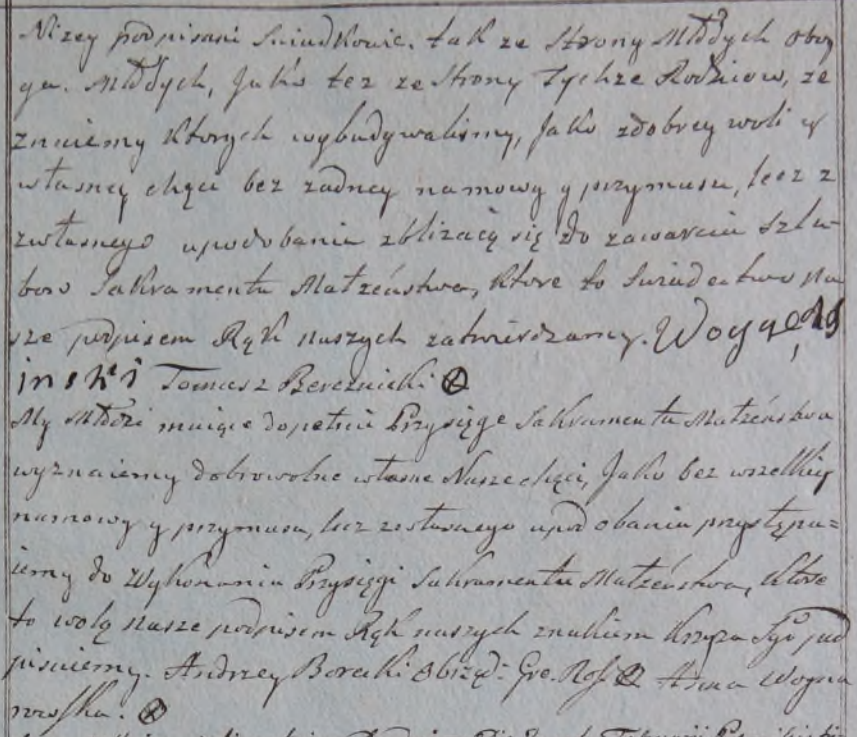 Niżey podpisani Swiadkowie. tak ze Strony Młodych oboy
ga. Młodych, Jako też ze Strony Tychże Rodziców, ze
znaiemy Ktorych wybadywaliśmy, Jako zdobrey woli y
własney chęci bez żadney namowy y przymusu, lecz z
zwłasnego upodobania zbliżacą się do zawarcia Szlu-
bow Sakramentu Małżeństwa, Ktore to Swiadectwo Na
sze podpisem Rąk naszych zatwierdzamy.
Tomasz Bereznicki
My Młodzi maiące dopełnić Przysięge Sakramentu Małżeństwa
wyznaiemy dobrowolne własne Nasze chęci, Jako bez wszelkiey
namowy y przymusu, lecz zwłasnego upodobania przystępu=
iemy do Wykonania Przysięgi Sakramentu Małżeństwa, Ktore
to wolą nasze podpisem Rąk naszych znakiem Krzyża Sgo pod
pisuiemy. Andrzey Borecki Obrząd: Gre. Ros. Anna Wogna
rowska.